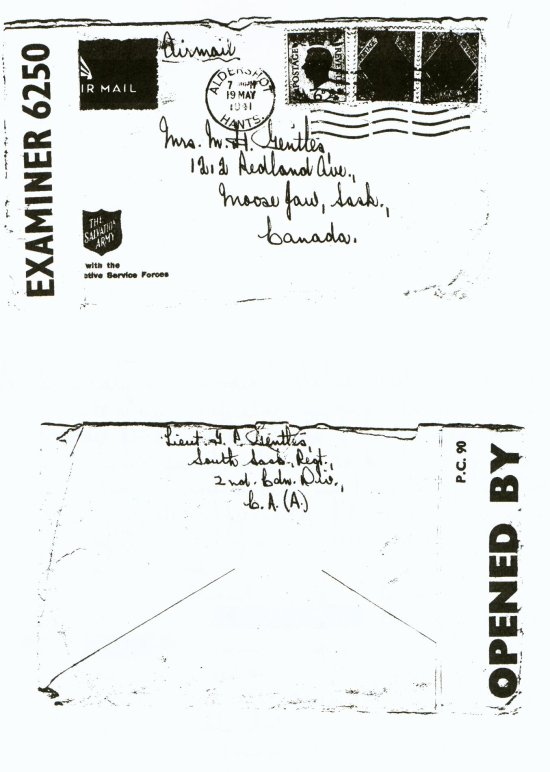 EXAMINER 6250
AIR MAIL
Airmail
ALDERSHOT
19 MAY
1941
HANTS.
POSTAGE
REVENUE
Mrs. M. H. Gentles,
1212 Redland Ave.,
Moose Jaw, Sask.,
Canada.
THE
SALVATION
ARMY
with the
ctive Service Forces
Lieut. G. P. Gentles,
South Sask. Regt.,
2nd. Cdn. Div.,
C.A.(A.)
P.C. 90
OPENED BY